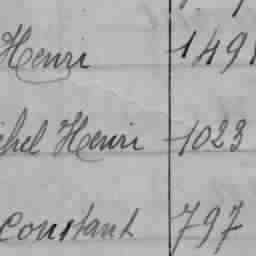 Henri 149
Henri 1023
Constant 797